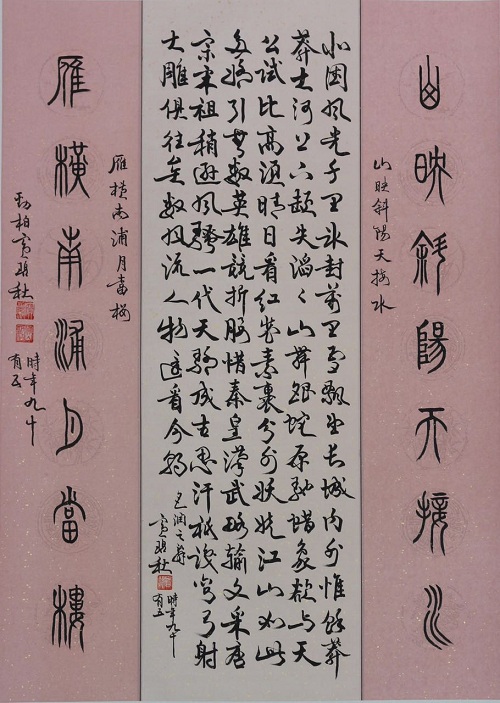 山映斜陽天接水
山映斜陽天接水
北國風光千里冰封萬里雪飄望長城内外惟餘莽
莽大河上下頓失滔々山舞銀蛇原馳蠟象欲与天
公試比高須晴日看紅裝素裹分外妖娆江山如此
多嬌引無數英雄競折腰惜秦皇漢武略输文采唐
宗宋祖稍遜風騷一代天驕成吉思汗祇識彎弓射
大雕俱往矣數風流人物還看今朝
毛潤之詞
時年九十
有五
雁橫南浦月當樓
雁横南浦月當樓
時年九十
有五